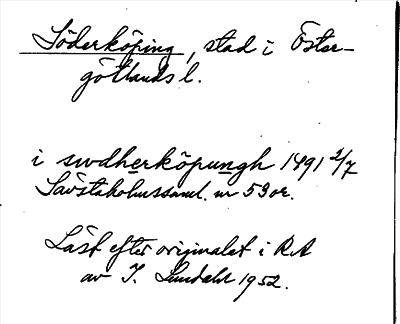 Söderköping, stad i Öster-
götlands l.
i swdherköpungh 1491 2/7
Sävstaholmssaml. nr 53 or.
Läst efter originalet i RA
av I. Lundahl 1952.